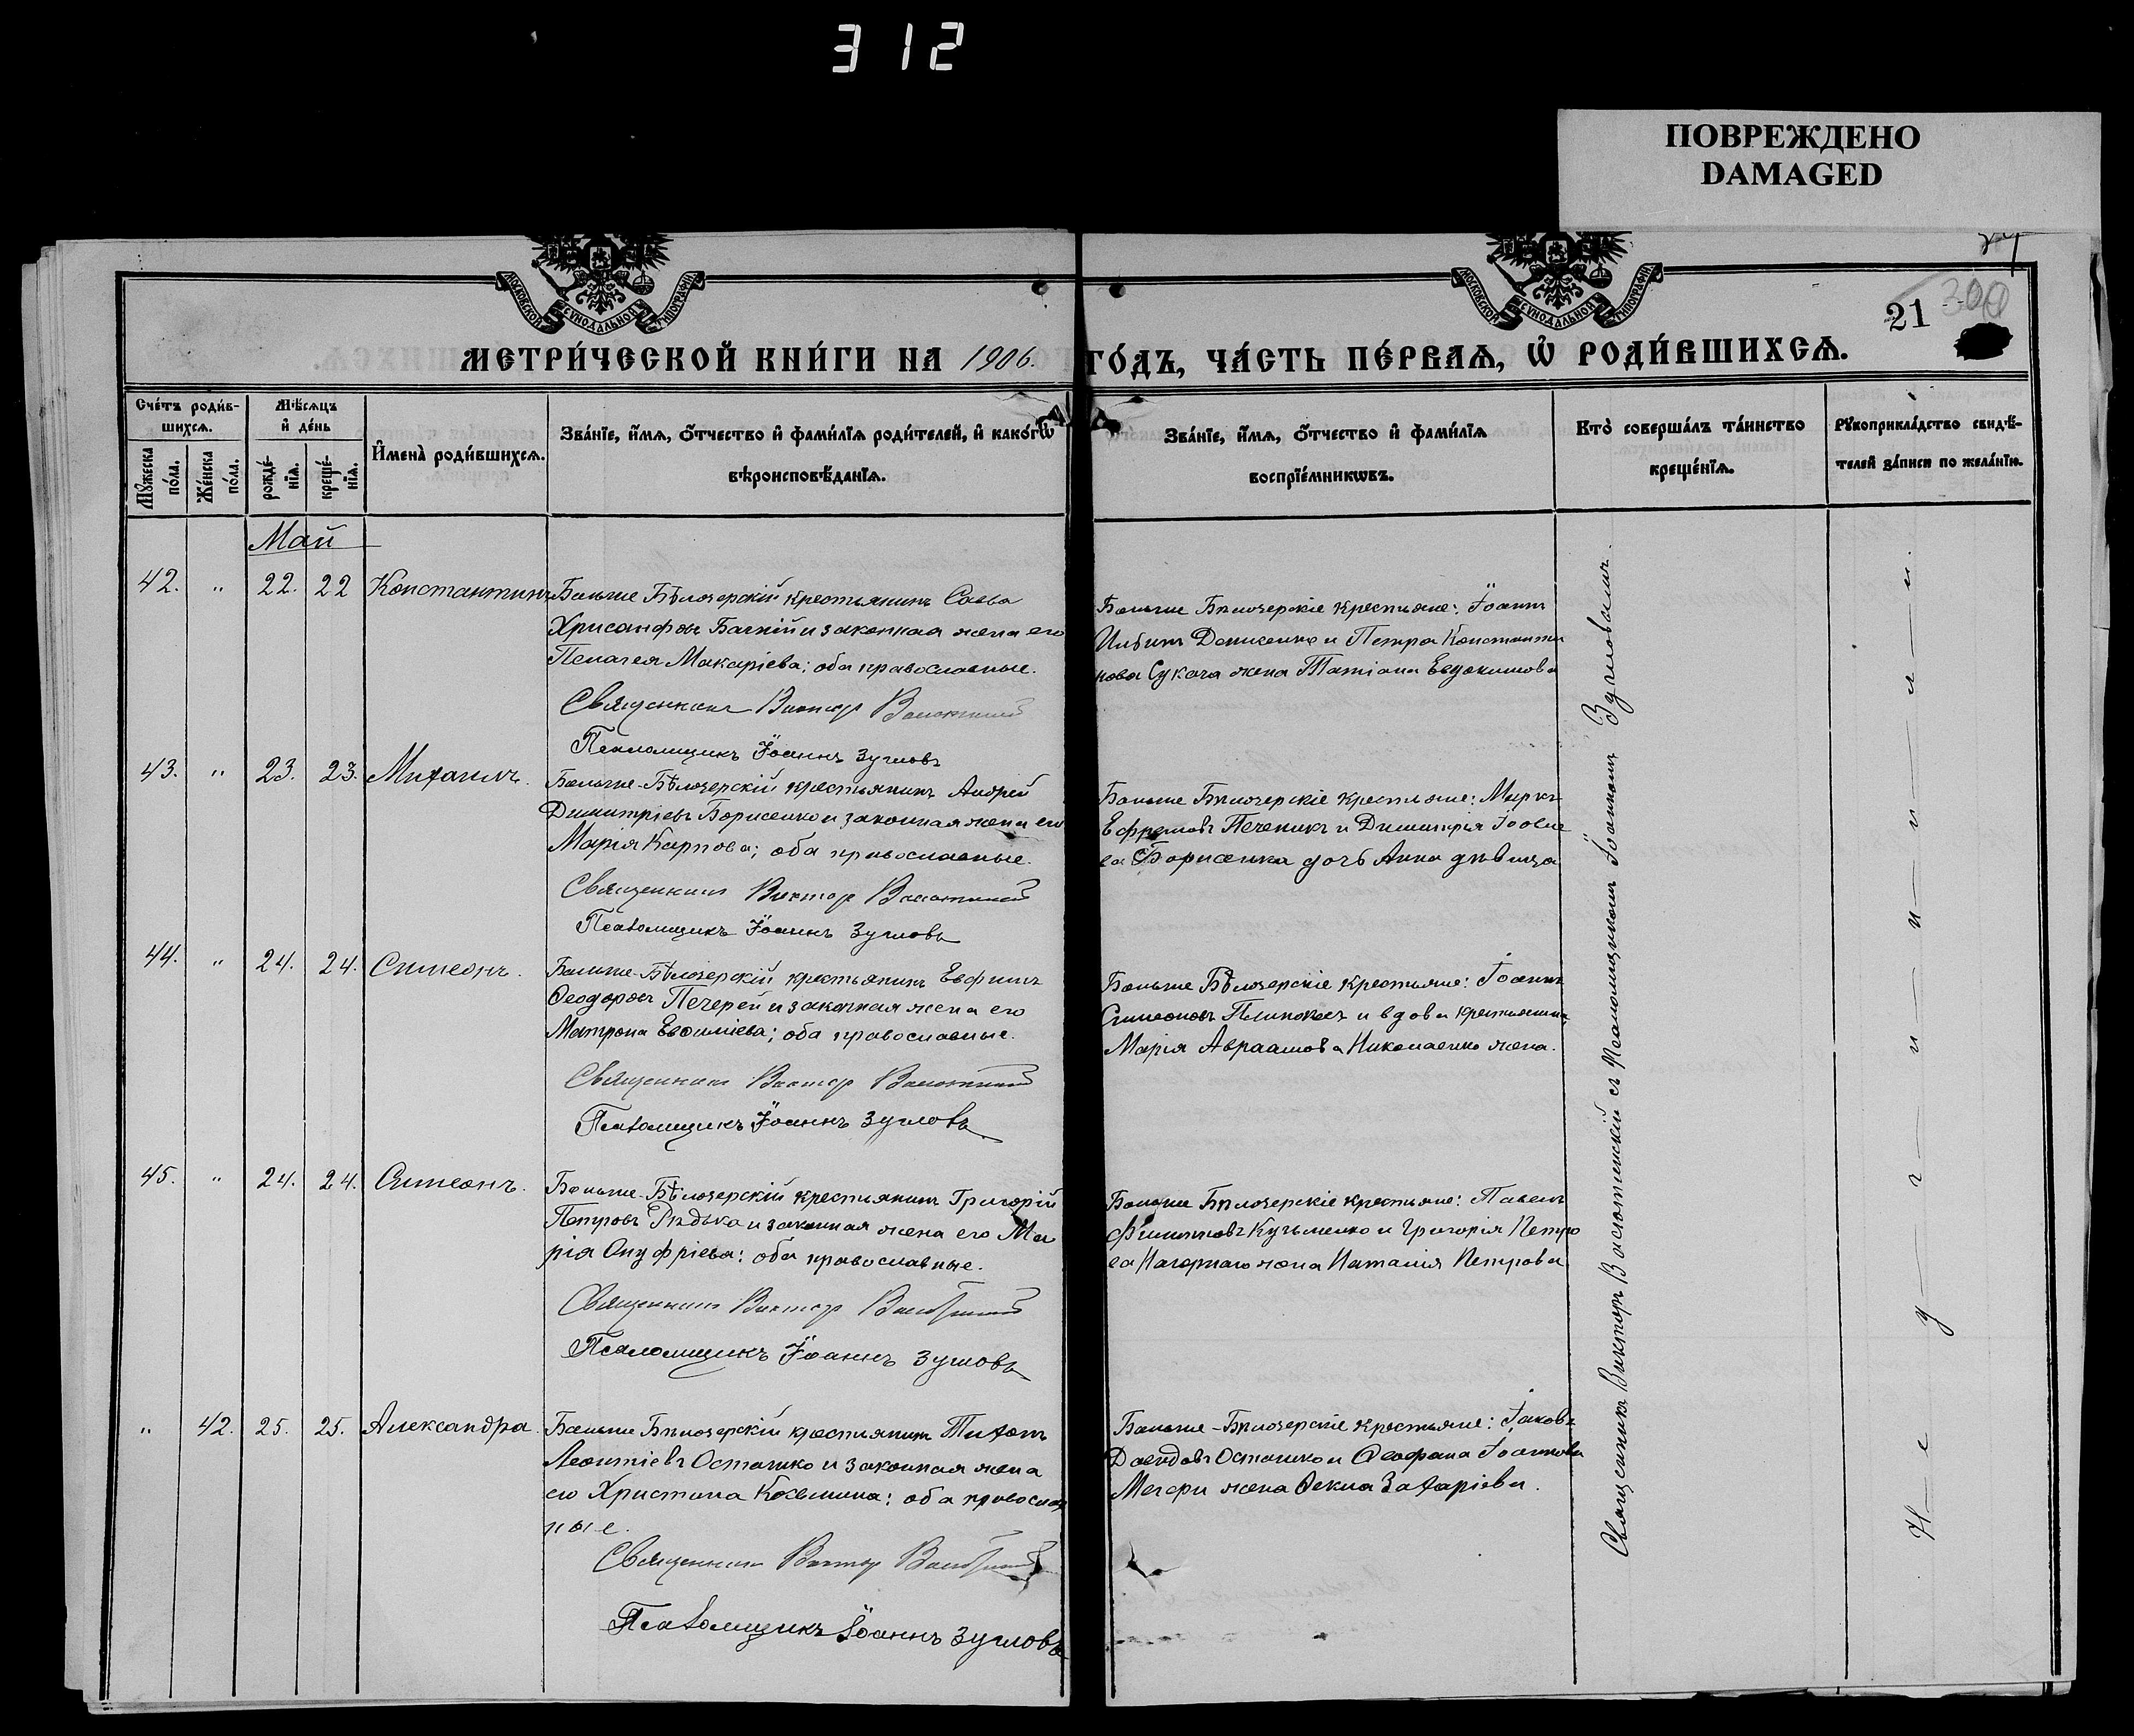 312
ПОВРЕЖДЕНО
DAMAGED
МОСКОВСКОЙ СѴНОДАЛЬНОЙ ТИПОГРАФІИ
МОСКОВСКОЙ СѴНОДАЛЬНОЙ ТИПОГРАФІИ
21
300
МЕТРИ́ЧЕСКОЙ КНИ́ГИ НА 1906. ГО́ДЪ, ЧА́СТЬ ПЕ́РВАѦ, Ѽ РОДИ́ВШИХСѦ.
Сче́тъ роди́в-
шихсѧ.
Мꙋ́жеска по́ла.
Же́нска по́ла.
Мѣ́сѧцъ
и҆ де́нь
рожде́-
нїѧ.
креще́-
нїѧ.
И҆мена̀ роди́вшихсѧ.
Зва́нїе, и҆́мѧ, ѻ҆́тчество и҆ фами́лїѧ роди́телей, и҆ како́гѡ
вѣроисповѣ́данїѧ.
Зва́нїе, и҆́мѧ, ѻ҆́тчество и҆ фами́лїѧ
воспрїе́мникѡвъ.
Кто̀ соверша́лъ та́инство
креще́нїѧ.
Рꙋкоприкла́дство свидѣ́-
телей за́писи по жела́нїю.
Май
42. „ 22. 22 Константинъ
Больше Бѣлозерскій крестьянинъ Савва
Хрисанфовъ Багній и законная жена его
Пелагея Макаріева; оба православные.
Священникъ Викторъ
Псаломщикъ Іоаннъ Зугловъ
Больше Бѣлозерскіе крестьяне: Іоаннъ
Денисенко и Петра Константи
нова Сукача жена Татіана Евдокимова
43. „ 23. 23. Михаилъ.
Больше-Бѣлозерскій крестьянинъ Андрей
Димитріевъ Борисенко и законная жена его
Марія Карпова; оба православные.
Священникъ Викторъ
Псаломщикъ Іоаннъ Зугловъ
Больше Бѣлозерскіе крестьяне: Маркъ
Ефремовъ Печеникъ и Димитрія Іовле
ва Борисенка дочь Анна дѣвица
44. „ 24. 24. Симеонъ.
Больше-Бѣлозерскій крестьянинъ Евфимъ
Ѳеодоровъ Печерей и законная жена его
Матрона Евѳиміева; оба православные.
Священникъ Викторъ
Псаломщикъ Іоаннъ Зугловъ
Больше Бѣлозерскіе крестьяне: Іоаннъ
Симеоновъ и вдова крестьянина
Марія Авраамова Николаенко жена.
45. „ 24. 24. Симеонъ.
Больше-Бѣлозерскій крестьянинъ Григорій
Петровъ Рѣдька и законная жена его Ма
рія Онуфріева; оба православные.
Священникъ Викторъ
Псаломщикъ Іоаннъ Зугловъ
Больше Бѣлозерскіе крестьяне: Павелъ
Филипповъ Кузьменко и Григорія Петро
ва Нагорнаго жена Наталія Петрова
„ 42. 25. 25. Александра.
Больше Бѣлозерскій крестьянинъ Титъ
Леонтіевъ Осташко и законная жена
его Христина Козьмина; оба православ
ные.
Священникъ Викторъ
Псаломщикъ Іоаннъ Зугловъ
Больше-Бѣлозерскіе крестьяне: Іаковъ
Давидовъ Осташко и Ѳеофана Іоаннова
Мегери жена Ѳекла Захаріева.
Священникъ Викторъ съ Псаломщикомъ Іоанномъ Зугловымъ.
Не учинили.